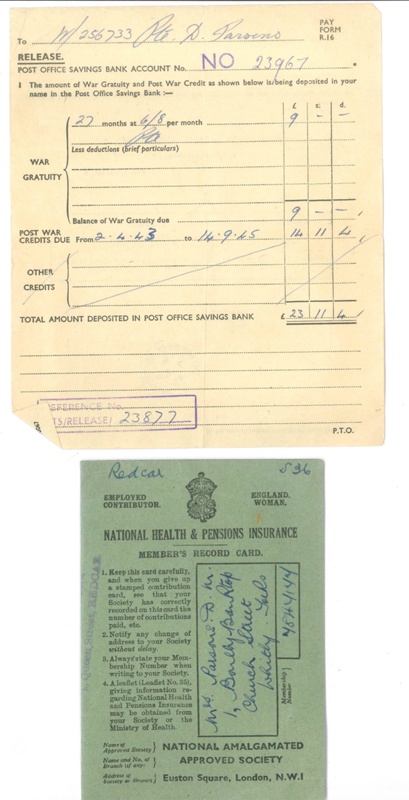 To W/256733 Pte. D. Parsons
PAY
FORM
R.16
RELEASE.
POST OFFICE SAVINGS BANK ACCOUNT No. NO 23967
1 The amount of War Gratuity and Post War Credit as shown below is/being deposited in your
name in the Post Office Savings Bank :—
£ s. d.
27 months at 6/8 per month 9 - -
Pte
Less deductions (brief particulars)
WAR
GRATUITY
Balance of War Gratuity due 9 - -
POST WAR
CREDITS DUE From 2.4.43 to 14.9.45 14 11 4
OTHER
CREDITS
TOTAL AMOUNT DEPOSITED IN POST OFFICE SAVINGS BANK £ 23 11 4
EFERENCE No.
TS/RELEASE/ 23877
P.T.O.
Redcar S 36
EMPLOYED
CONTRIBUTOR.
ENGLAND.
WOMAN.
NATIONAL HEALTH & PENSIONS INSURANCE
MEMBER'S RECORD CARD.
1. Keep this card carefully,
and when you give up
a stamped contribution
card, see that your
Society has correctly
recorded on this card the
number of contributions
paid, etc.
2. Notify any change of
address to your Society
without delay.
3. Always state your Member-
ship Number when
writing to your Society.
4. A leaflet (Leaflet No. 35),
giving information re-
garding National Health
and Pensions Insurance
may be obtained from
your Society or the
Ministry of Health.
Mrs. Parsons D. M.
1, Boulby Bank Top
Church Street
Whitby
Membership
Number
REDCAR
Name of
Approved Society
NATIONAL AMALGAMATED
APPROVED SOCIETY
Name and No. of
Branch (if any)
Address of
Society or Branch
Euston Square, London, N.W.1